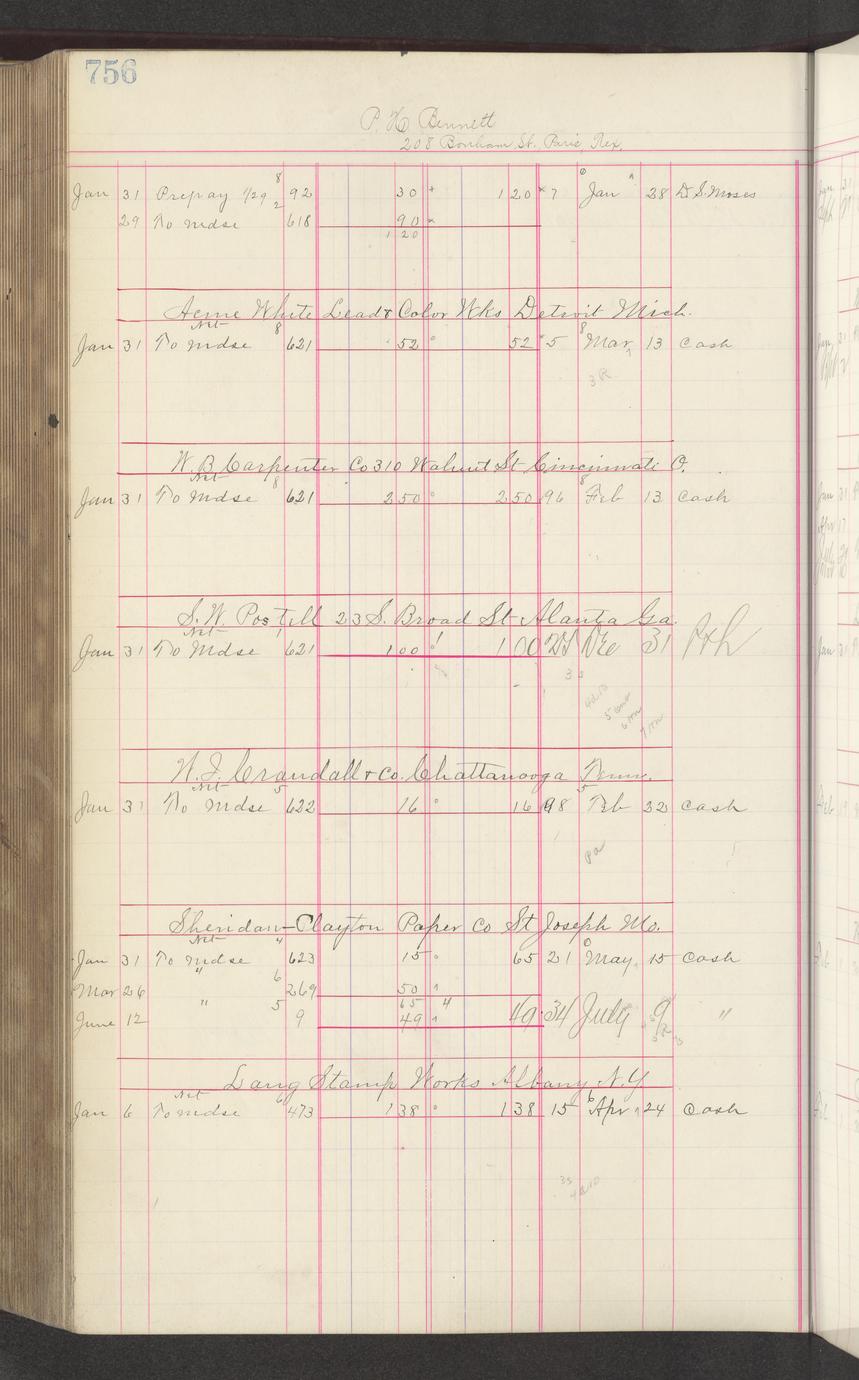 756
P. H. Bennett
208 Bonham St. Paris, Tex.
8
Jan 31 Prepay 1/29 92 30 120 7 Jan 28 D. S. Moses
2
29 To mdse 618 90
1 20
Acme White Lead & Color Wks Detroit Mich.
Net 8 8
Jan 31 To mdse 621 52 52 5 Mar 13 Cash
3 R
W. B. Carpenter Co 310 Walnut St Cincinnati O.
Net 8 8
Jan 31 To Mdse 621 250 250 96 Feb 13 Cash
S. W. Postell 23 S. Broad St Alanta Ga.
Net 1
Jan 31 To Mdse 621 100 100 Dec 31
3 s
W. I. Crandall & Co. Chattanooga Tenn.
Net 5 5
Jan 31 To Mdse 622 16 16 98 Feb 32 Cash
Pa
Sheridan-Clayton Paper Co St Joseph Mo.
Net 4
Jan 31 To Mdse 623 15 65 21 May 15 Cash
Mar 26 " 6 269 50
65
June 12 " 5 9 49 49 34 July 9 "
Lang Stamp Works Albany N.Y
Net 6 6
Jan 6 To mdse 473 138 138 15 Apr 24 Cash
3s